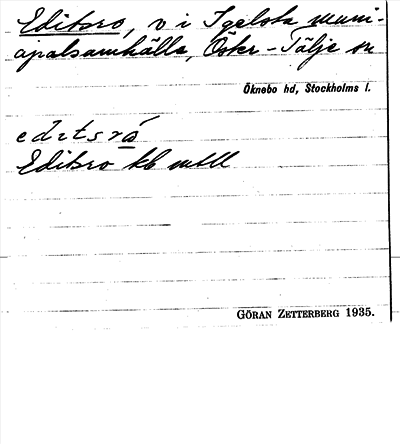 Editsro, v i Igelsta muni-
cipalsamhälle, Öster-Tälje sn
Öknebo hd, Stockholms l.
editsrå
Editsro kb mtll
GÖRAN ZETTERBERG 1935.